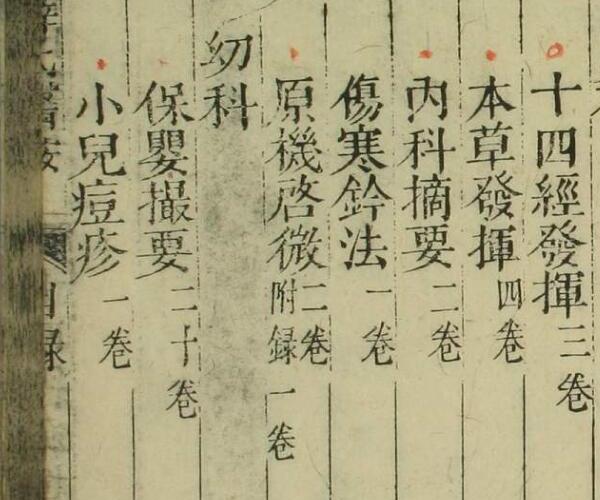 十四經發揮三卷
本草發揮四卷
內科摘要二卷
傷寒鈐法一卷
原機啓微二卷附録一卷
幼科
保嬰撮要二十卷
小兒痘疹一卷
醫案 目録